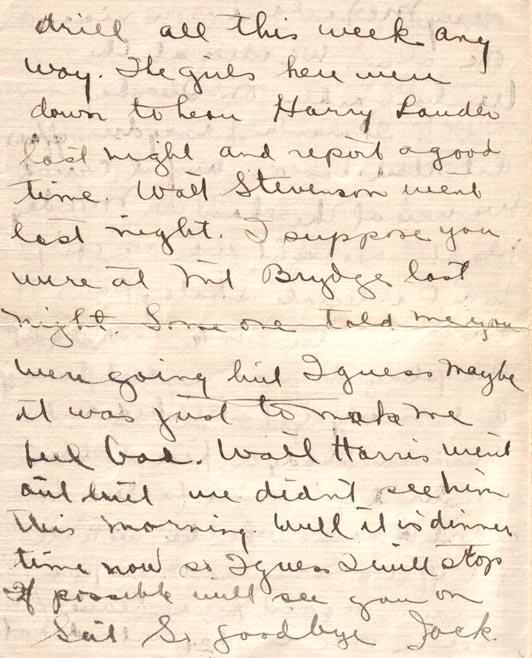 drill all this week any
way. The girls here were
down to hear Harry Lauder
last night and report a good
time Walt Stevenson went
last night. I suppose you
were at Mt Brydge last
night. Some one told me you
were going but I guess maybe
it was just to make me
feel bad. Walt Harris went
out but we didn't see him
this morning Well it is dinner
time now so I guess I will stop
If possible will see you on
Sat So goodbye Jack